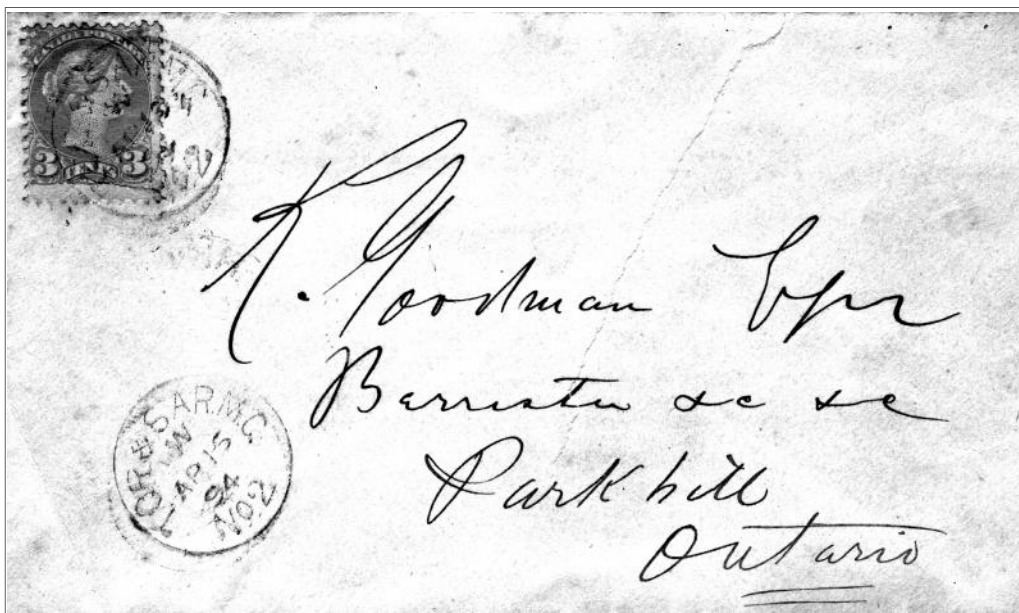 CANADA POSTAGE
3 CENTS 3
K. Goodman Esqr
Barrister &c &c
Parkhill
Ontario
TOR & SAR. M.C.
W
AP 15
94
No 2